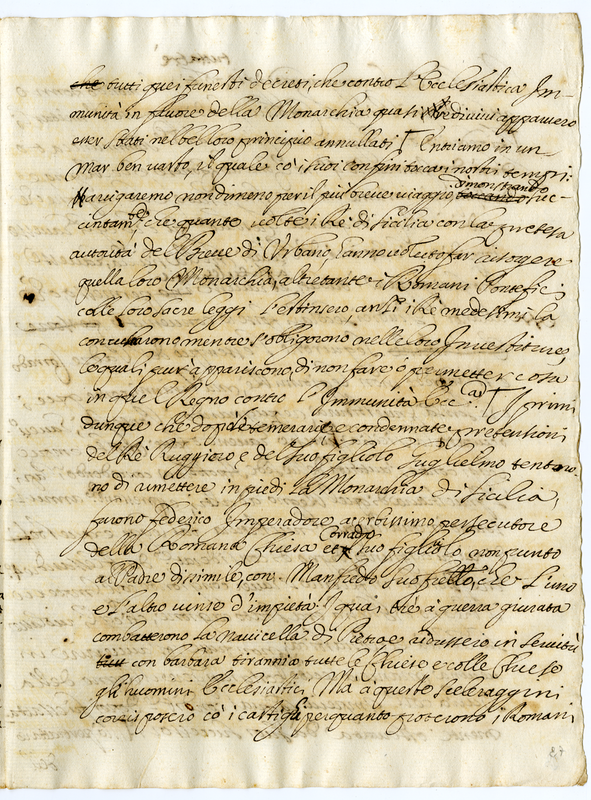 che tutti quei funesti decreti, che contro l'Ecclesiastica Im-
munità in favore della Monarchia quasi divini apparvero
esser stati nel bel loro principio annullati Entriamo in un
Mar ben vasto, il quale co' i suoi confini tocca i nostri tempi:
Navigaremo nondimeno per il più breve viaggio dimostrando suc-
cintam.te che quante volte i Rè di Sicilia con la pretesa
autorità del Breve di Urbano hanno voluto far risorgere
quella loro Monarchia, altretante i Romani Pontefici
colle loro sacre leggi l'estinsero, anzi i Rè medesimi la
conculcarono mentre s'obligorono nelle loro Investiture,
le quali pur'appariscono, di non fare, ò permetter cosa
in quel Regno contro l'Immunità Ecc. I primi
dunque che dopò le temerarie, e condennate pretensioni
del Rè Ruggioro, e del suo figliolo Guglielmo tentoro-
no di rimettere in piedi la Monarchia di Sicilia,
furono Federico Imperadore acerbissimo persecutore
della Romana Chiesa et Corrado suo figliolo non punto
al Padre dissimile, con Manfredo suo frello, che l'uno
e l'altro vinse d'impietà. I quai, che à guerra giurata
combatterono la navicella di Pietro, e ridussero in servitù
con barbara tirannia tutte le Chiese e colle Chiese
gli huomini Ecclesiastici Ma à queste sceleraggini
corrisposero co' i castighi per quanto poterono i Romani